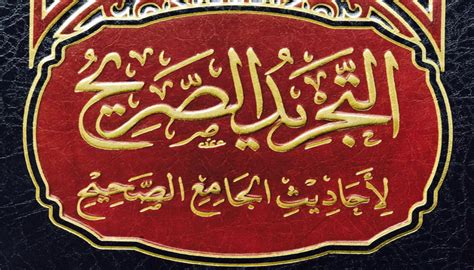 التَّجْرِيدُ الصَّرِيحُ
لِأَحَادِيثِ الجَامِعِ الصَّحِيحِ